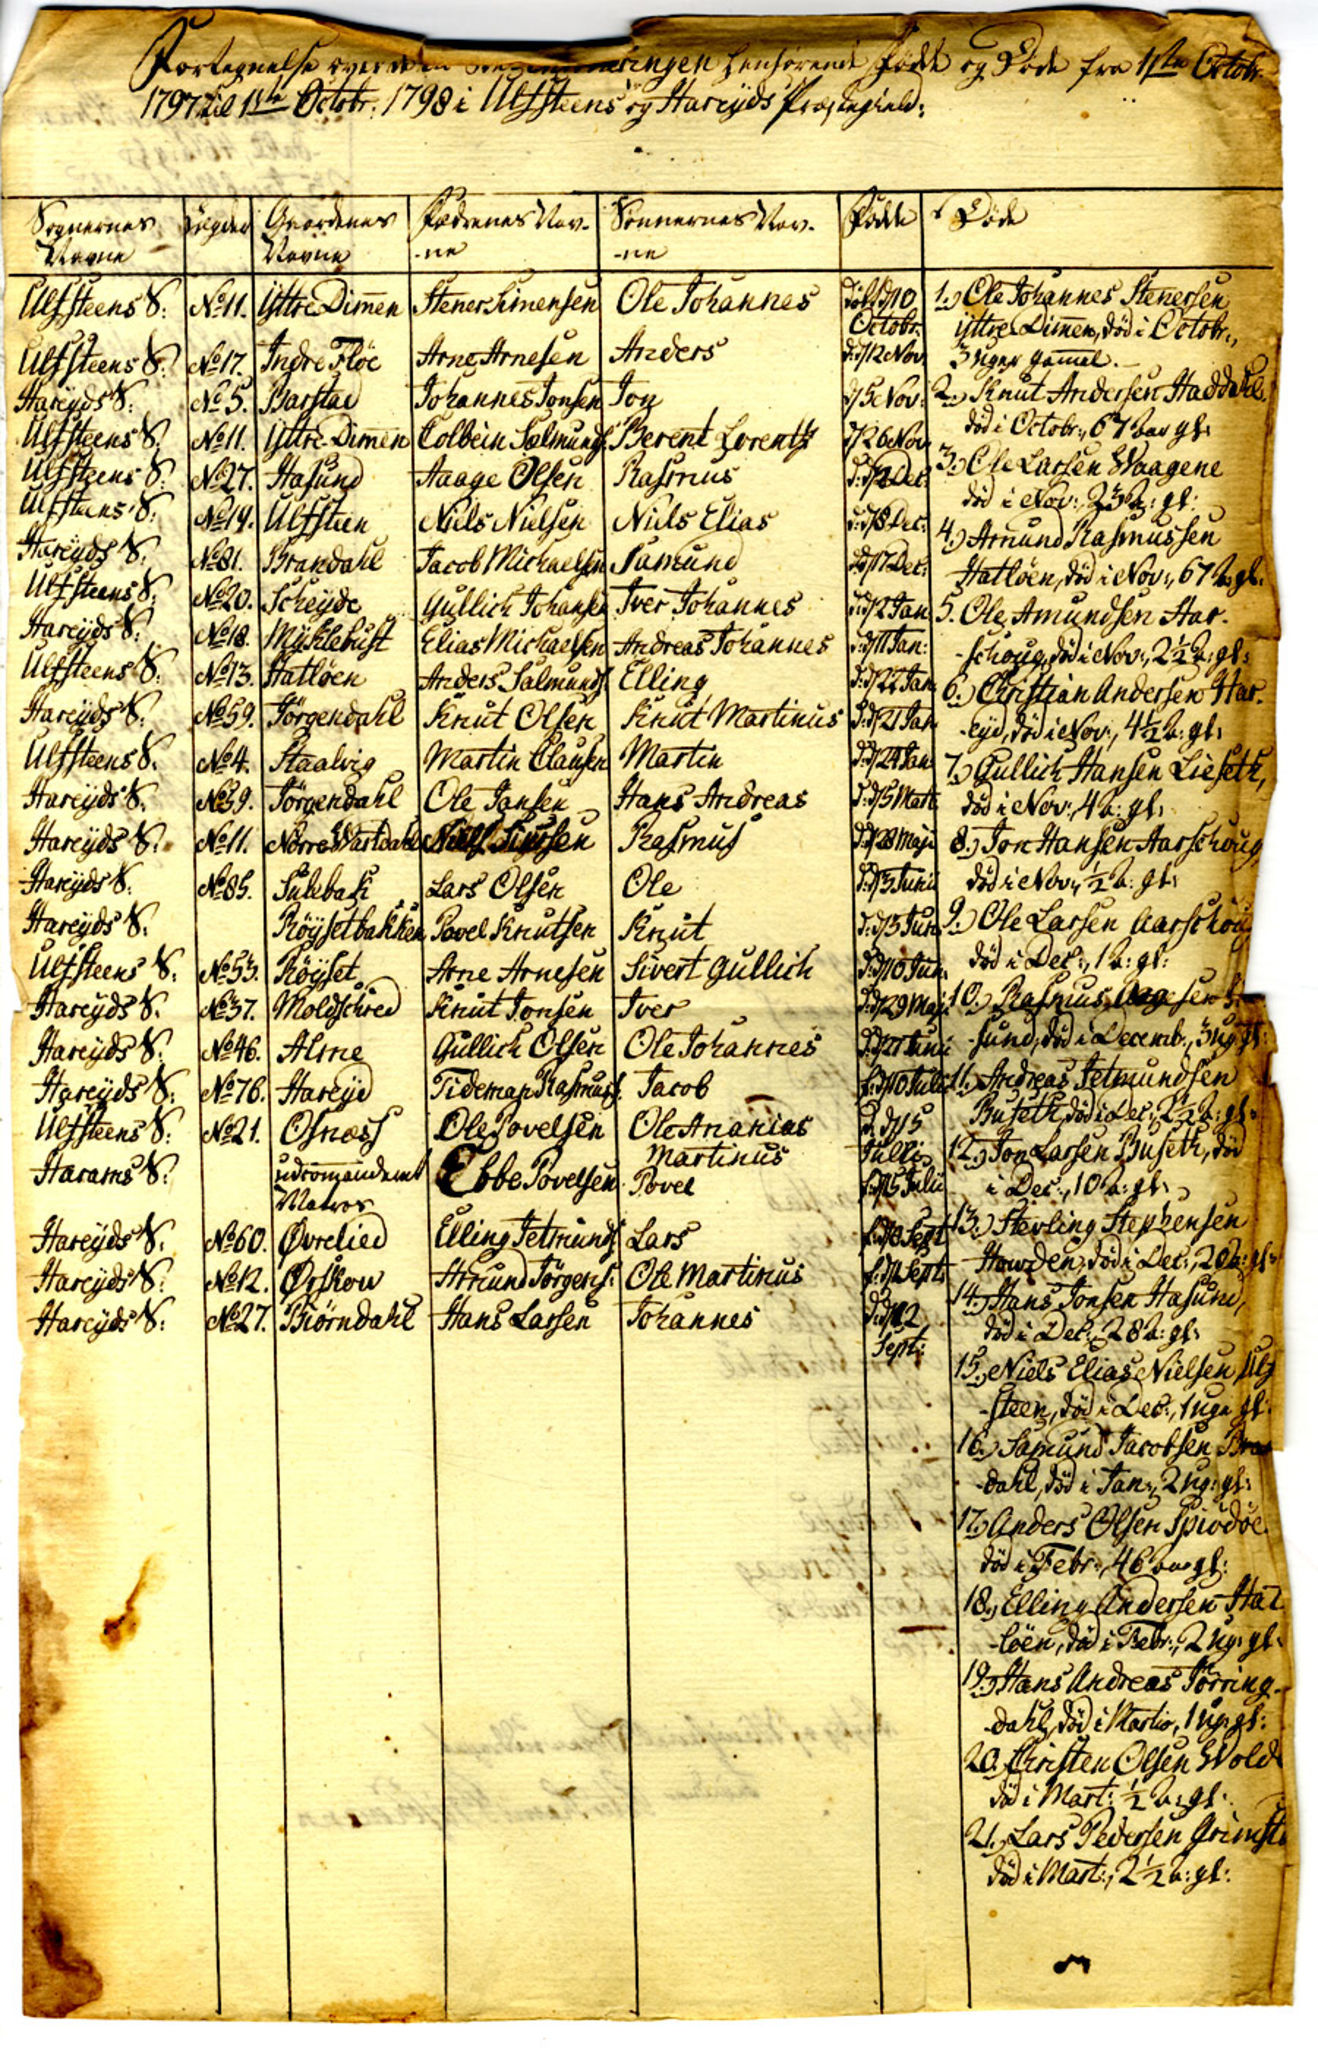 Fortegnelse over de henhørende Fødte og Døde fra 1ste Octobr.
1797 til 1ste Octobr. 1798 i Ulfsteens og Hareyds Præstegield.
Sognernes Navne | Gaardenes Navne | Fædrenes Nav-ne | Sønnernes Nav-ne | Fødte | Døde
Ulfsteens S: No 11. Yttre Dimen Stener Simensen Ole Johannes d 10 Octobr.
Ulfsteens S: No 17. Indre Fløe Arne Arnesen Anders d: d 12 Nov
Hareyds S: No 5. Barstad Johannes Jonsen Jon d 5 Nov:
Ulfsteens S: No 11. Yttre Dimen Colbein Salmunds: Berent Lorentz d 26 Nov
Ulfsteens S: No 27. Hasund Aage Olsen Rasmus Dec:
Ulfsteens S: No 14. Ulfsteen Niels Nielsen Niels Elias d: d 8 Dec:
Hareyds S: No 81. Brandahl Jacob Michaelsen Samund d 17 Dec:
Ulfsteens S: No 20. Scheyde Gullich Johansen Iver Johannes d: d 2 Jan
Hareyds S: No 18. Myklebust Elias Michaelsen Andreas Johannes d: d 11 Jan:
Ulfsteens S: No 13. Hatløen Anders Salmunds: Elling d: d 22 Jan
Hareyds S: No 59. Jørgendahl Knut Olsen Knut Martinus d: d 21 Jan
Ulfsteens S: No 4. Staalvig Martin Clausen Martin d: d 24 Jan
Hareyds S: No 59. Jørgendahl Ole Jansen Hans Andreas d: d 5 Mart
Hareyds S: No 11. Nørre Wartdahl Niels Rasmus d: d 28 Maji
Hareyds S: No 85. Sulebak Lars Olsen Ole d: d 3 Junii
Hareyds S: Røysetbakken Povel Knutsen Knut d: d 3 Jun:
Ulfsteens S: No 53. Røyset Arne Arnesen Sivert Gullich d: d 10 Jun:
Hareyds S: No 37. Moldschred Knut Jonsen Iver d: d 29 Maji
Hareyds S: No 46. Alme Gullich Olsen Ole Johannes d: d 27 Junii
Hareyds S: No 76. Hareyd Tideman Rasmuss: Jacob f: d 10 Julii
Ulfsteens S: No 21. Osnæss Ole Povelsen Ole Ananias Martinus d. d 15 Julli
Harams S: udcommanderet Matros Ebbe Povelsen Povel f: d 15 Julii
Hareyds S: No 60. Øvrelied Elling Jetmunds: Lars Sept
Hareyds S: No 12. Ørskow Amund Jørgens: Ole Martinus Sept:
Hareyds S: No 27. Biørndahl Hans Larsen Johannes Sept:
1.) Ole Johannes Stenersen
Yttre Dimen, død i Octobr.,
3 uger gamel.
2.) Knut Andersen Haddahl.
død i Octobr., 67 aar gl:
3.) Ole Larsen Waagene
død i Nov:, 23 a: gl:
4.) Amund Rasmussen
Hatløen, død i Nov:, 67 a: gl.
5. Ole Amundsen Har-
-schoug, død i Nov:, 2½ a: gl:
6. Christian Andersen Har-
-eyd, død i Nov:, 4½ a: gl:
7.) Gullich Hansen Lieseth,
død i Nov:, 4 a: gl:
8.) Jon Hansen Aarschoug
død i Nov:, ½ a: gl:
9.) Ole Larsen Aarschoug
død i Dec:, 1 a: gl:
10.) Rasmus Aagesen
-sund, død i Decemb:, 3 ug: gl:
11. Andreas Jetmundsen
Buseth, død i Dec:, 2½ a: gl:
12.) Jon Larsen Buseth, død
i Dec:, 10 a: gl:
13.) Sterling Stephensen
Howden, død i Dec:, 20 a: gl:
14.) Hans Jonsen Hasund,
død i Dec:, 28 a: gl:
15.) Niels Elias Nielsen Ulf
-steen, død i Dec:, 1 uge gl:
16.) Samund Jacobsen Bran
-dahl, død i Jan:, 2 ug: gl:
17.) Anders Olsen Spiødøe
død i Febr:, 46 aar gl:
18.) Elling Andersen Hat
-løen, død i Febr:, 2 ug: gl:
19.) Hans Andreas Jørring-
-dahl, død i Martio, 1 ug: gl:
20. Christen Olsen Wold
død i Mart: ½ a: gl:
21.) Lars Pedersen Grimst
død i Mart:, 2½ a: gl: